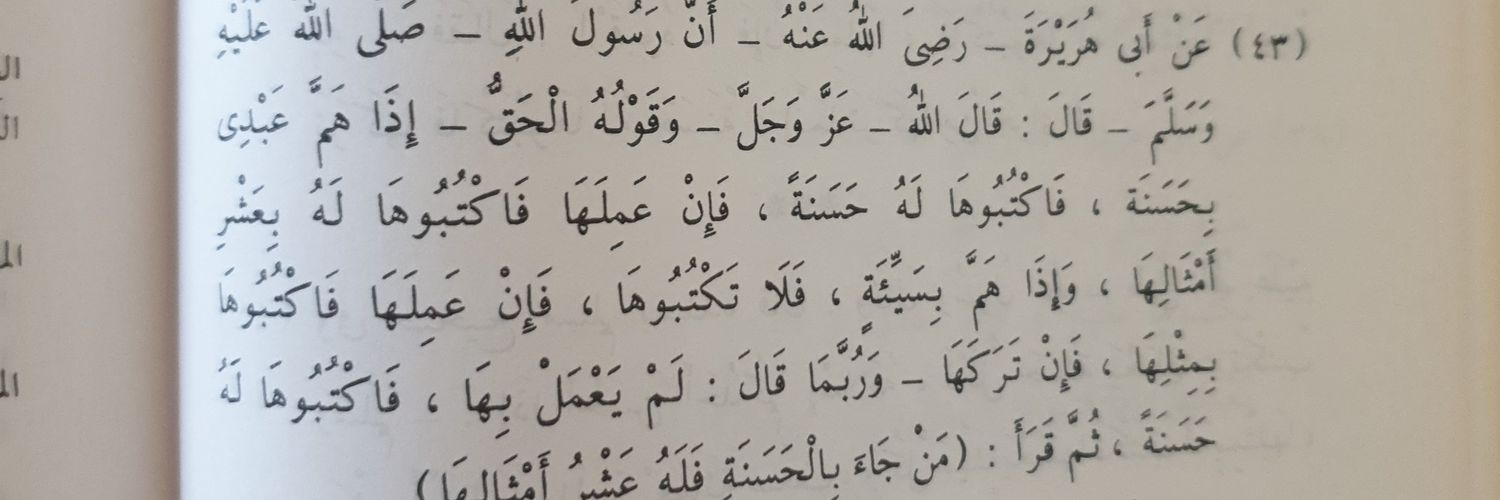 (٤٣) عَنْ أَبِى هُرَيْرَةَ – رَضِىَ اللهُ عَنْهُ – أَنَّ رَسُولَ اللهِ – صَلَّى اللهُ عَلَيْهِ
وَسَلَّمَ – قَالَ : قَالَ اللهُ – عَزَّ وَجَلَّ – وَقَوْلُهُ الْحَقُّ – إِذَا هَمَّ عَبْدِى
بِحَسَنَة ، فَاكْتُبُوهَا لَهُ حَسَنَةً ، فَإِنْ عَمِلَهَا فَاكْتُبُوهَا لَهُ بِعَشْرِ
أَمْثَالِهَا ، وَإِذَا هَمَّ بِسَيِّئَةٍ ، فَلَا تَكْتُبُوهَا ، فَإِنْ عَمِلَهَا فَاكْتُبُوهَا
بِمِثْلِهَا ، فَإِنْ تَرَكَهَا – وَرُبَّمَا قَالَ : لَمْ يَعْمَلْ بِهَا ، فَاكْتُبُوهَا لَهُ
حَسَنَةً ، ثُمَّ قَرَأَ : (مَنْ جَاءَ بِالْحَسَنَةِ فَلَهُ عَشْرُ أَمْثَالِهَا)